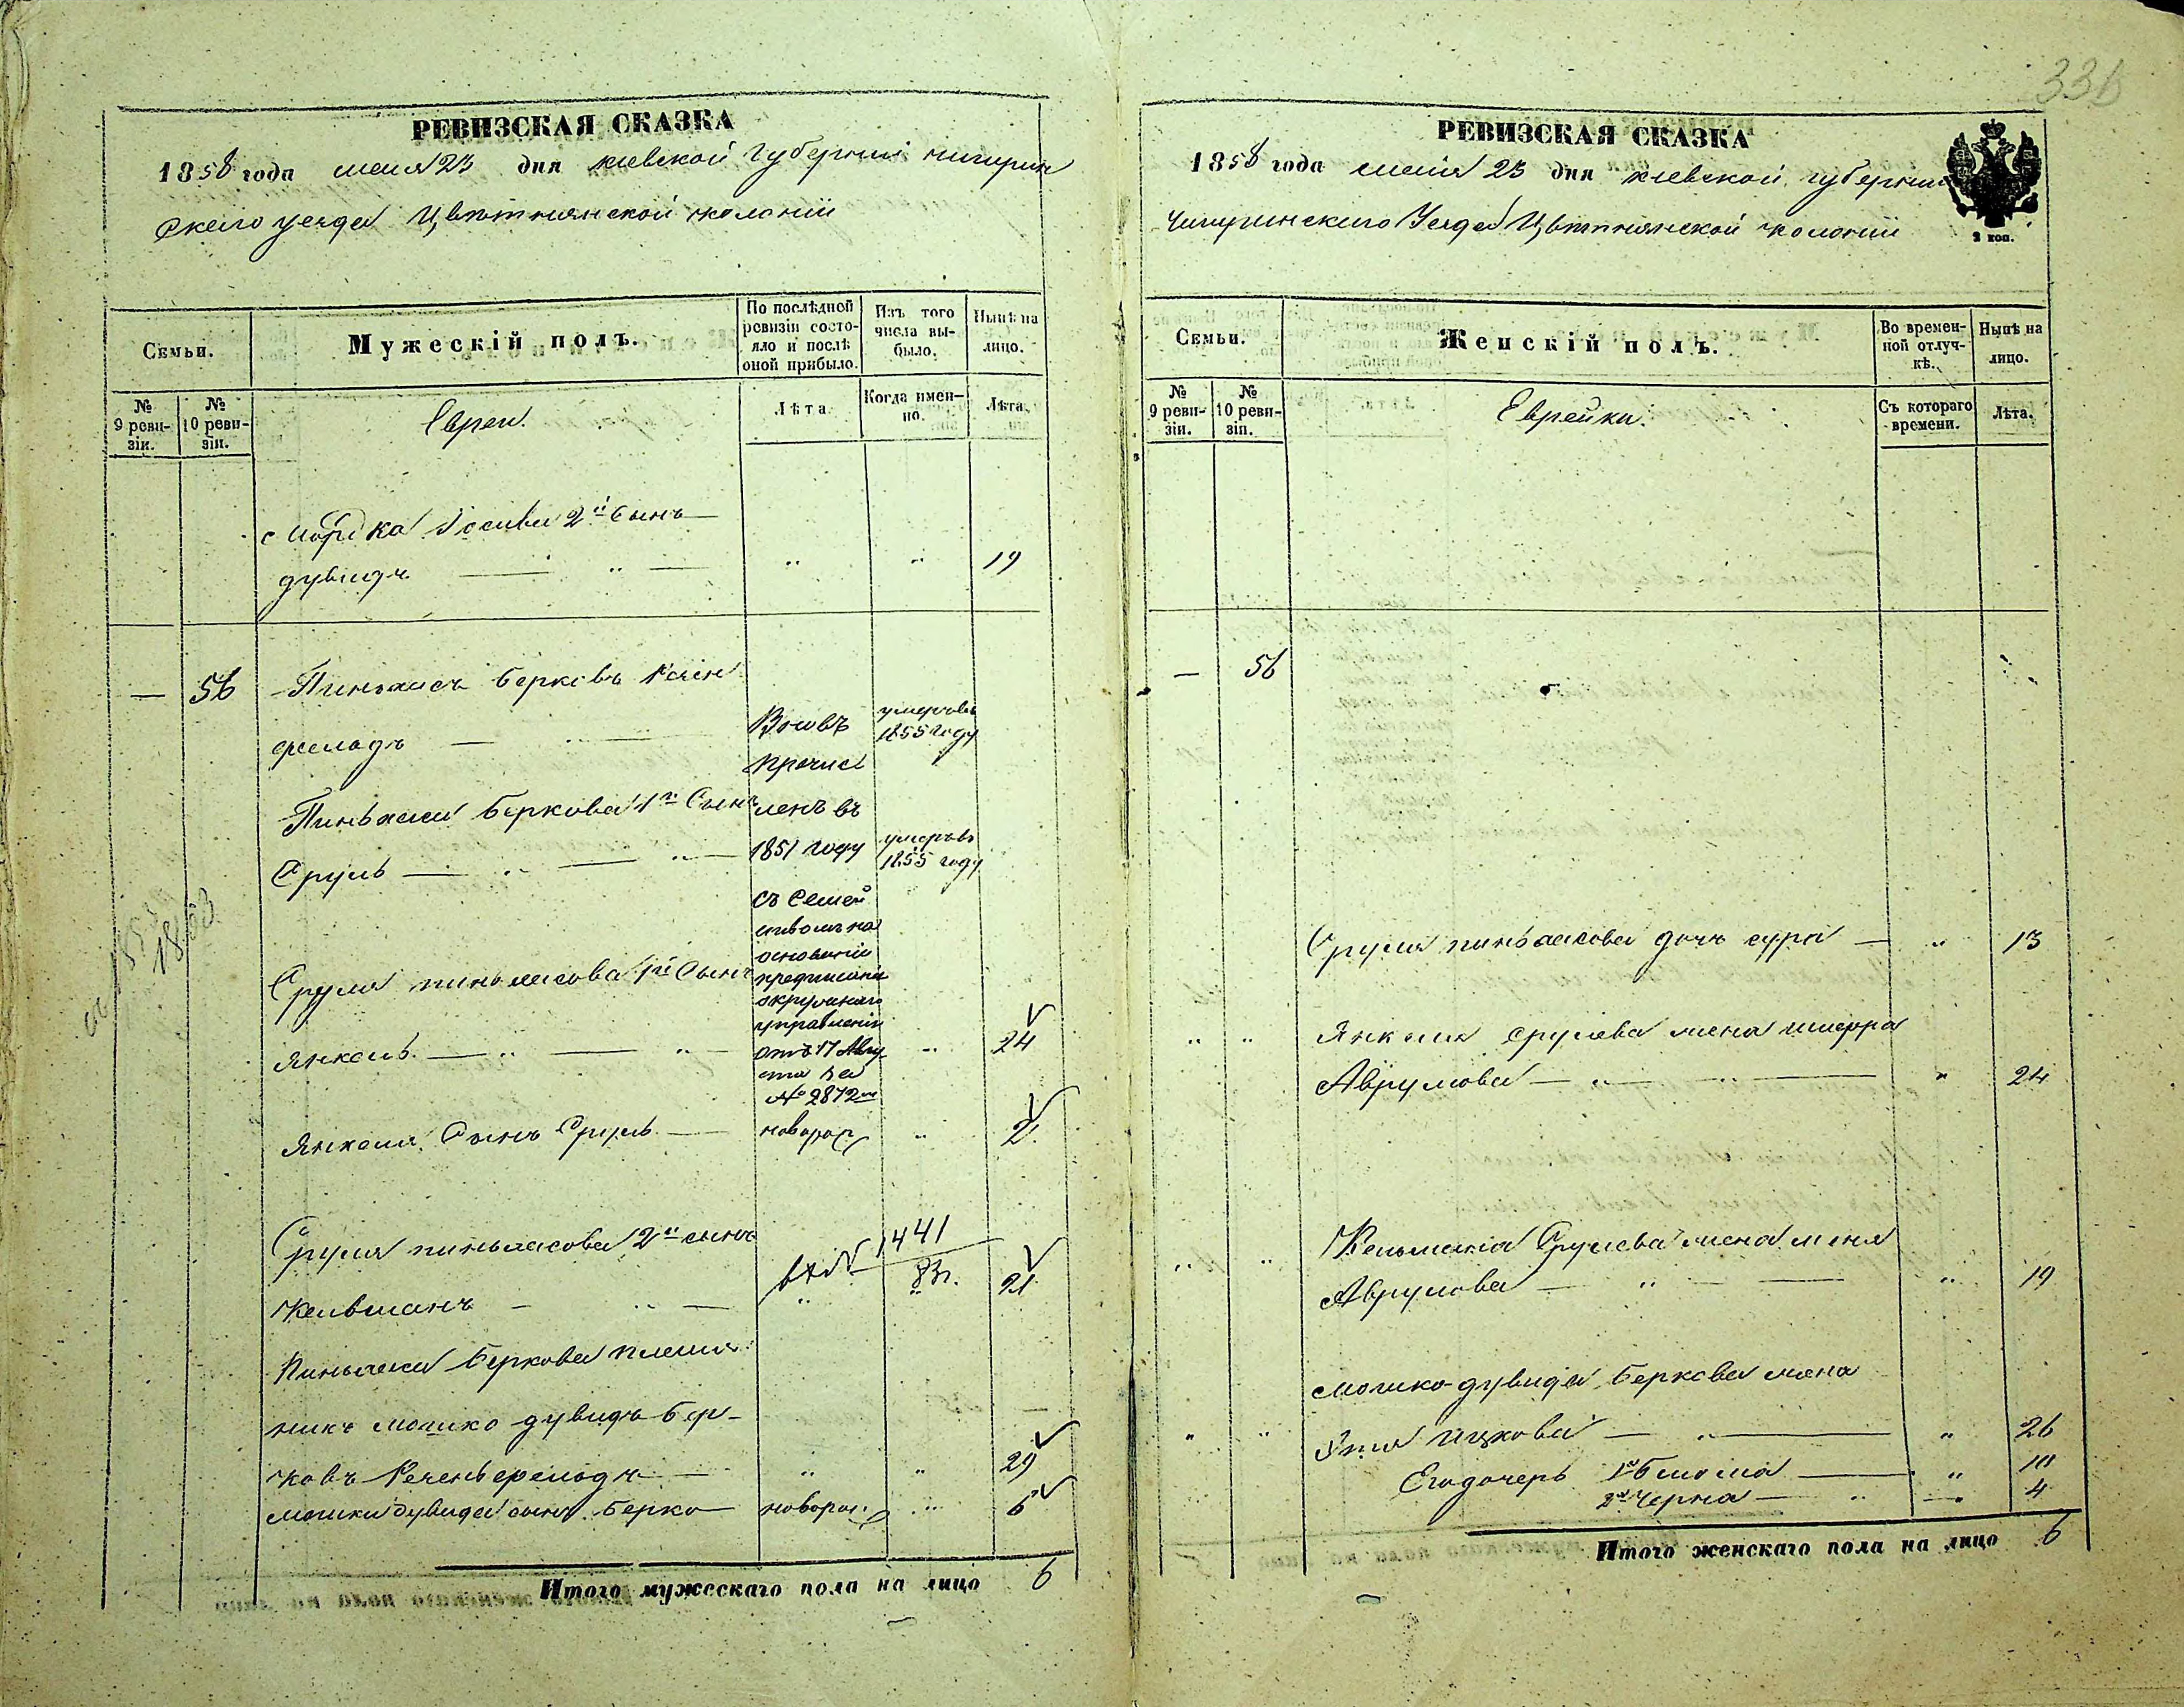 РЕВИЗСКАЯ СКАЗКА
1858 года мая 23 дня киевской губернии чигирин
скаго уезда Цвѣтнянской колонии
Семьи.
Мужескій полъ.
По послѣдней ревизіи состояло и послѣ оной прибыло.
Изъ того числа выбыло.
Нынѣ на лицо.
№ 9 ревизіи.
№ 10 ревизіи.
Евреи.
Лѣта
Когда именно.
Лѣта.
Мордка Иосива 2й Сынъ
дувидъ 19
— 56 Пиньхасъ Берковъ
Вновь умеръ въ 1855 году
причис
Пиньхаса Беркова 1й Сынъ ленъ въ
Сруль 1851 году умеръ въ 1855 году
съ Семей
ствомъ на
основаніи
Сруля пиньхасова 1й Сынъ предписанія
окружнаго
управленія
Янкель отъ 17 Авгу 24
ста за
№ 2872м
Янкеля Сынъ Сруль новорож 2
Сруля пиньхасова 2й сынъ
1441
83г.
Кельманъ 21
Пиньхаса Беркова племя
никъ Мошко дувидъ Бер-
ковъ 29
Мошки дувида сынъ Берко новорож. 6
Итого мужескаго пола на лицо 6
РЕВИЗСКАЯ СКАЗКА
1858 года мая 23 дня киевской губернии
Чигиринскаго Уезда Цвѣтнянской колонии
2 коп.
Семьи.
Женскій полъ.
Во временной отлучкѣ.
Нынѣ на лицо.
№ 9 ревизіи.
№ 10 ревизіи.
Еврейки.
Съ котораго времени.
Лѣта.
— 56
Сруля пиньхасова дочь сура 13
Янкеля срулева жена
Аврумова 24
Кельмана Срулева жена
Аврумова 19
Мошко-дувида Беркова жена
Ицкова 26
Его дочерь 1я 10
2я Черна 4
Итого женскаго пола на лицо 6